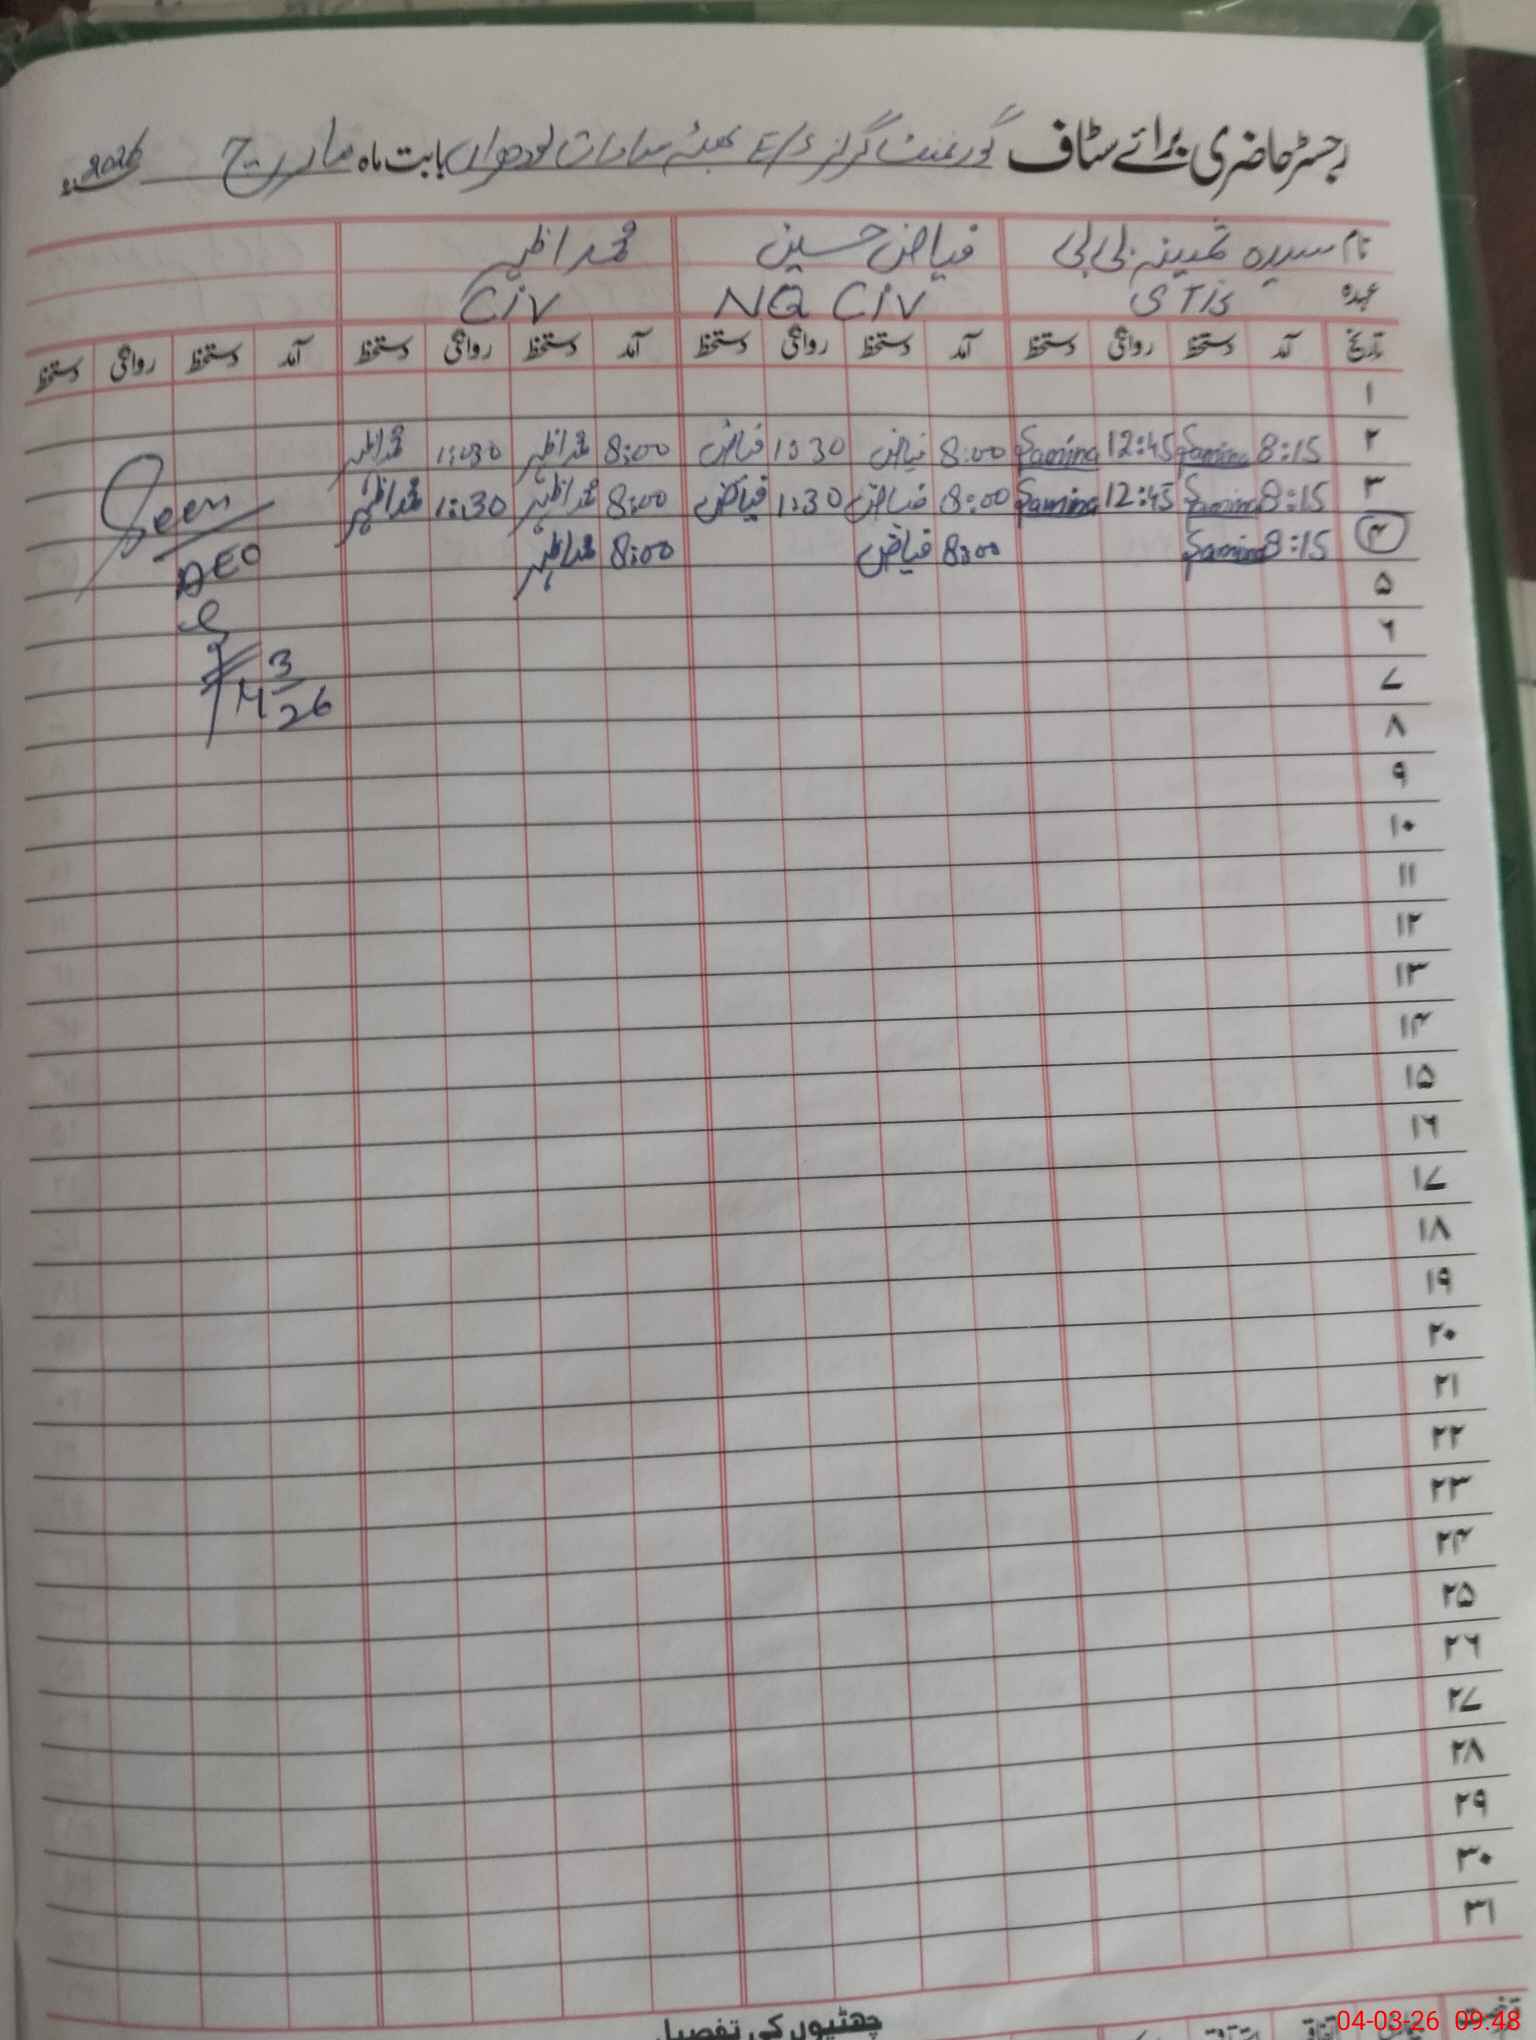 رجسٹر حاضری برائے سٹاف گورنمنٹ گرلز E/S سادات لودھراں بابت ماہ مارچ 2026ء
نام سیدہ ثمینہ بی بی فیاض حسین محمد اظہر
عہدہ STI's NQ C/V C/V
تاریخ آمد دستخط روانگی دستخط آمد دستخط روانگی دستخط آمد دستخط روانگی دستخط آمد دستخط روانگی دستخط
۱
۲ 8:15 Samina 12:45 Samina 8:00 فیاض 1:30 فیاض 8:00 محمد اظہر 1:30 محمد اظہر
۳ 8:15 Samina 12:45 Samina 8:00 فیاض 1:30 فیاض 8:00 محمد اظہر 1:30 محمد اظہر
۴ 8:15 Samina 8:00 فیاض 8:00 محمد اظہر
Seen
AEO
۵
۶
۷
3
26
۸
۹
۱۰
۱۱
۱۲
۱۳
۱۴
۱۵
۱۶
۱۷
۱۸
۱۹
۲۰
۲۱
۲۲
۲۳
۲۴
۲۵
۲۶
۲۷
۲۸
۲۹
۳۰
۳۱
چھٹیوں کی تفصیل
04-03-26 09:48